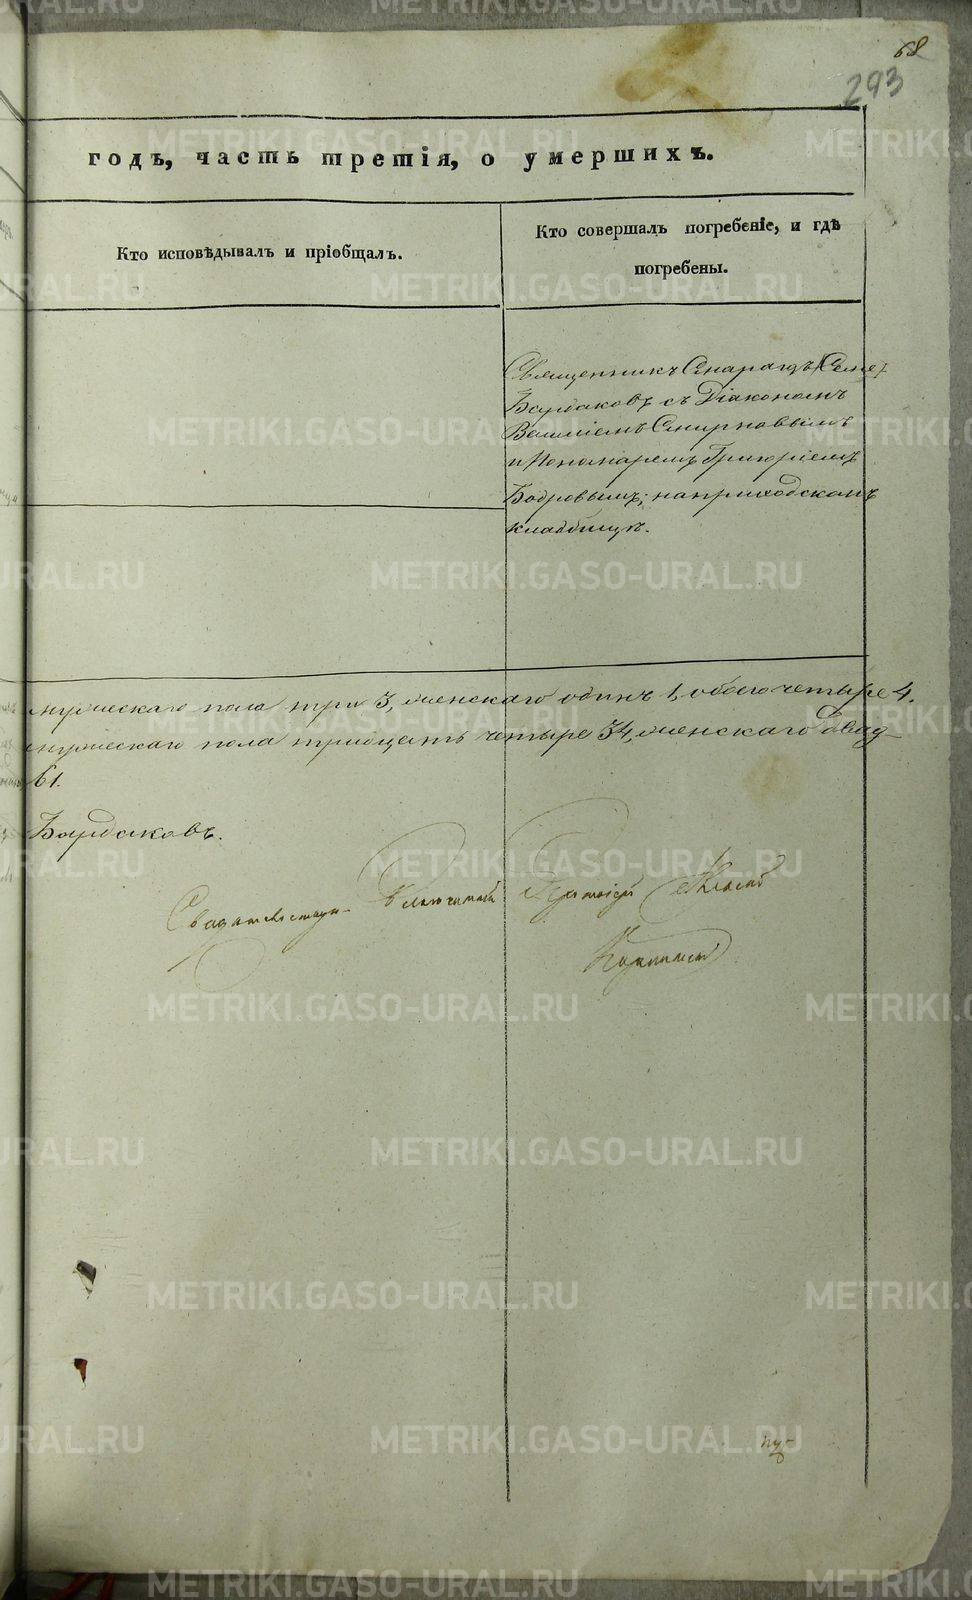 68
293
годъ, часть третія, о умершихъ.
Кто исповѣдывалъ и пріобщалъ.
Кто совершалъ погребеніе, и гдѣ
погребены.
Священникъ
Бардаковъ съ Діакономъ
Василіемъ Смирновымъ
и Пономаремъ Григоріемъ
Бобровымъ; на приходскомъ
кладбищѣ.
мужескаго пола три 3, женскаго одинъ 1, обоего четыре 4.
мужескаго пола тридцать четыре 34, женскаго двад-
61.
Бардаковъ.
METRIKI.GASO-URAL.RU